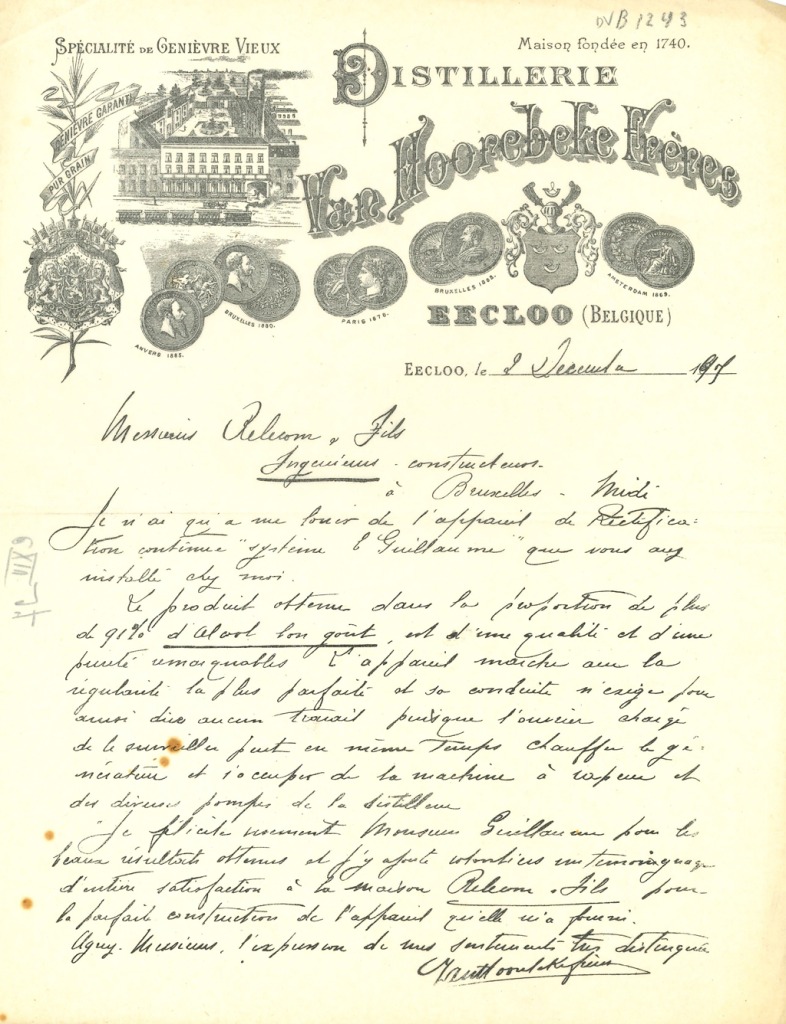 DVB 1243
SPÉCIALITÉ DE GENIÈVRE VIEUX
Maison fondée en 1740.
DISTILLERIE
Van Hoorebeke Frères
GENIÈVRE GARANTI
PUR GRAIN
ANVERS 1885.
BRUXELLES 1880.
PARIS 1878.
BRUXELLES 1888.
AMSTERDAM 1869.
EECLOO (BELGIQUE)
EECLOO, le 2 Decembre
Messieurs Relecom & Fils
Ingenieurs-constructeurs-
à Bruxelles - Midi
Je n'ai qu'a me louer de l'appareil de Rectifica-
tion continue "système E Guillaume" que vous avez
installé chez moi.
Le produit obtenu dans la proportion de plus
de 91% d'alcool bon goût, est d'une qualité et d'une
pureté remarquables L'appareil marche avec la
régularité la plus parfaite et sa conduite n'exige pour
ainsi dire aucun travail puisque l'ouvrier chargé
de le surveiller peut en même temps chauffer le gé-
nérateur et s'occuper de la machine à vapeur et
des diverses pompes de la distillerie
Je félicite vivement Monsieur Guillaume pour les
beaux résultats obtenus et j'y ajoute volontiers un temoignage
d'entière satisfaction à la maison Relecom & Fils pour
la parfaite construction de l'appareil qu'elle m'a fourni.
Agréez Messieurs, l'expression de mes sentiments très distingués
VanHoorebeke frères